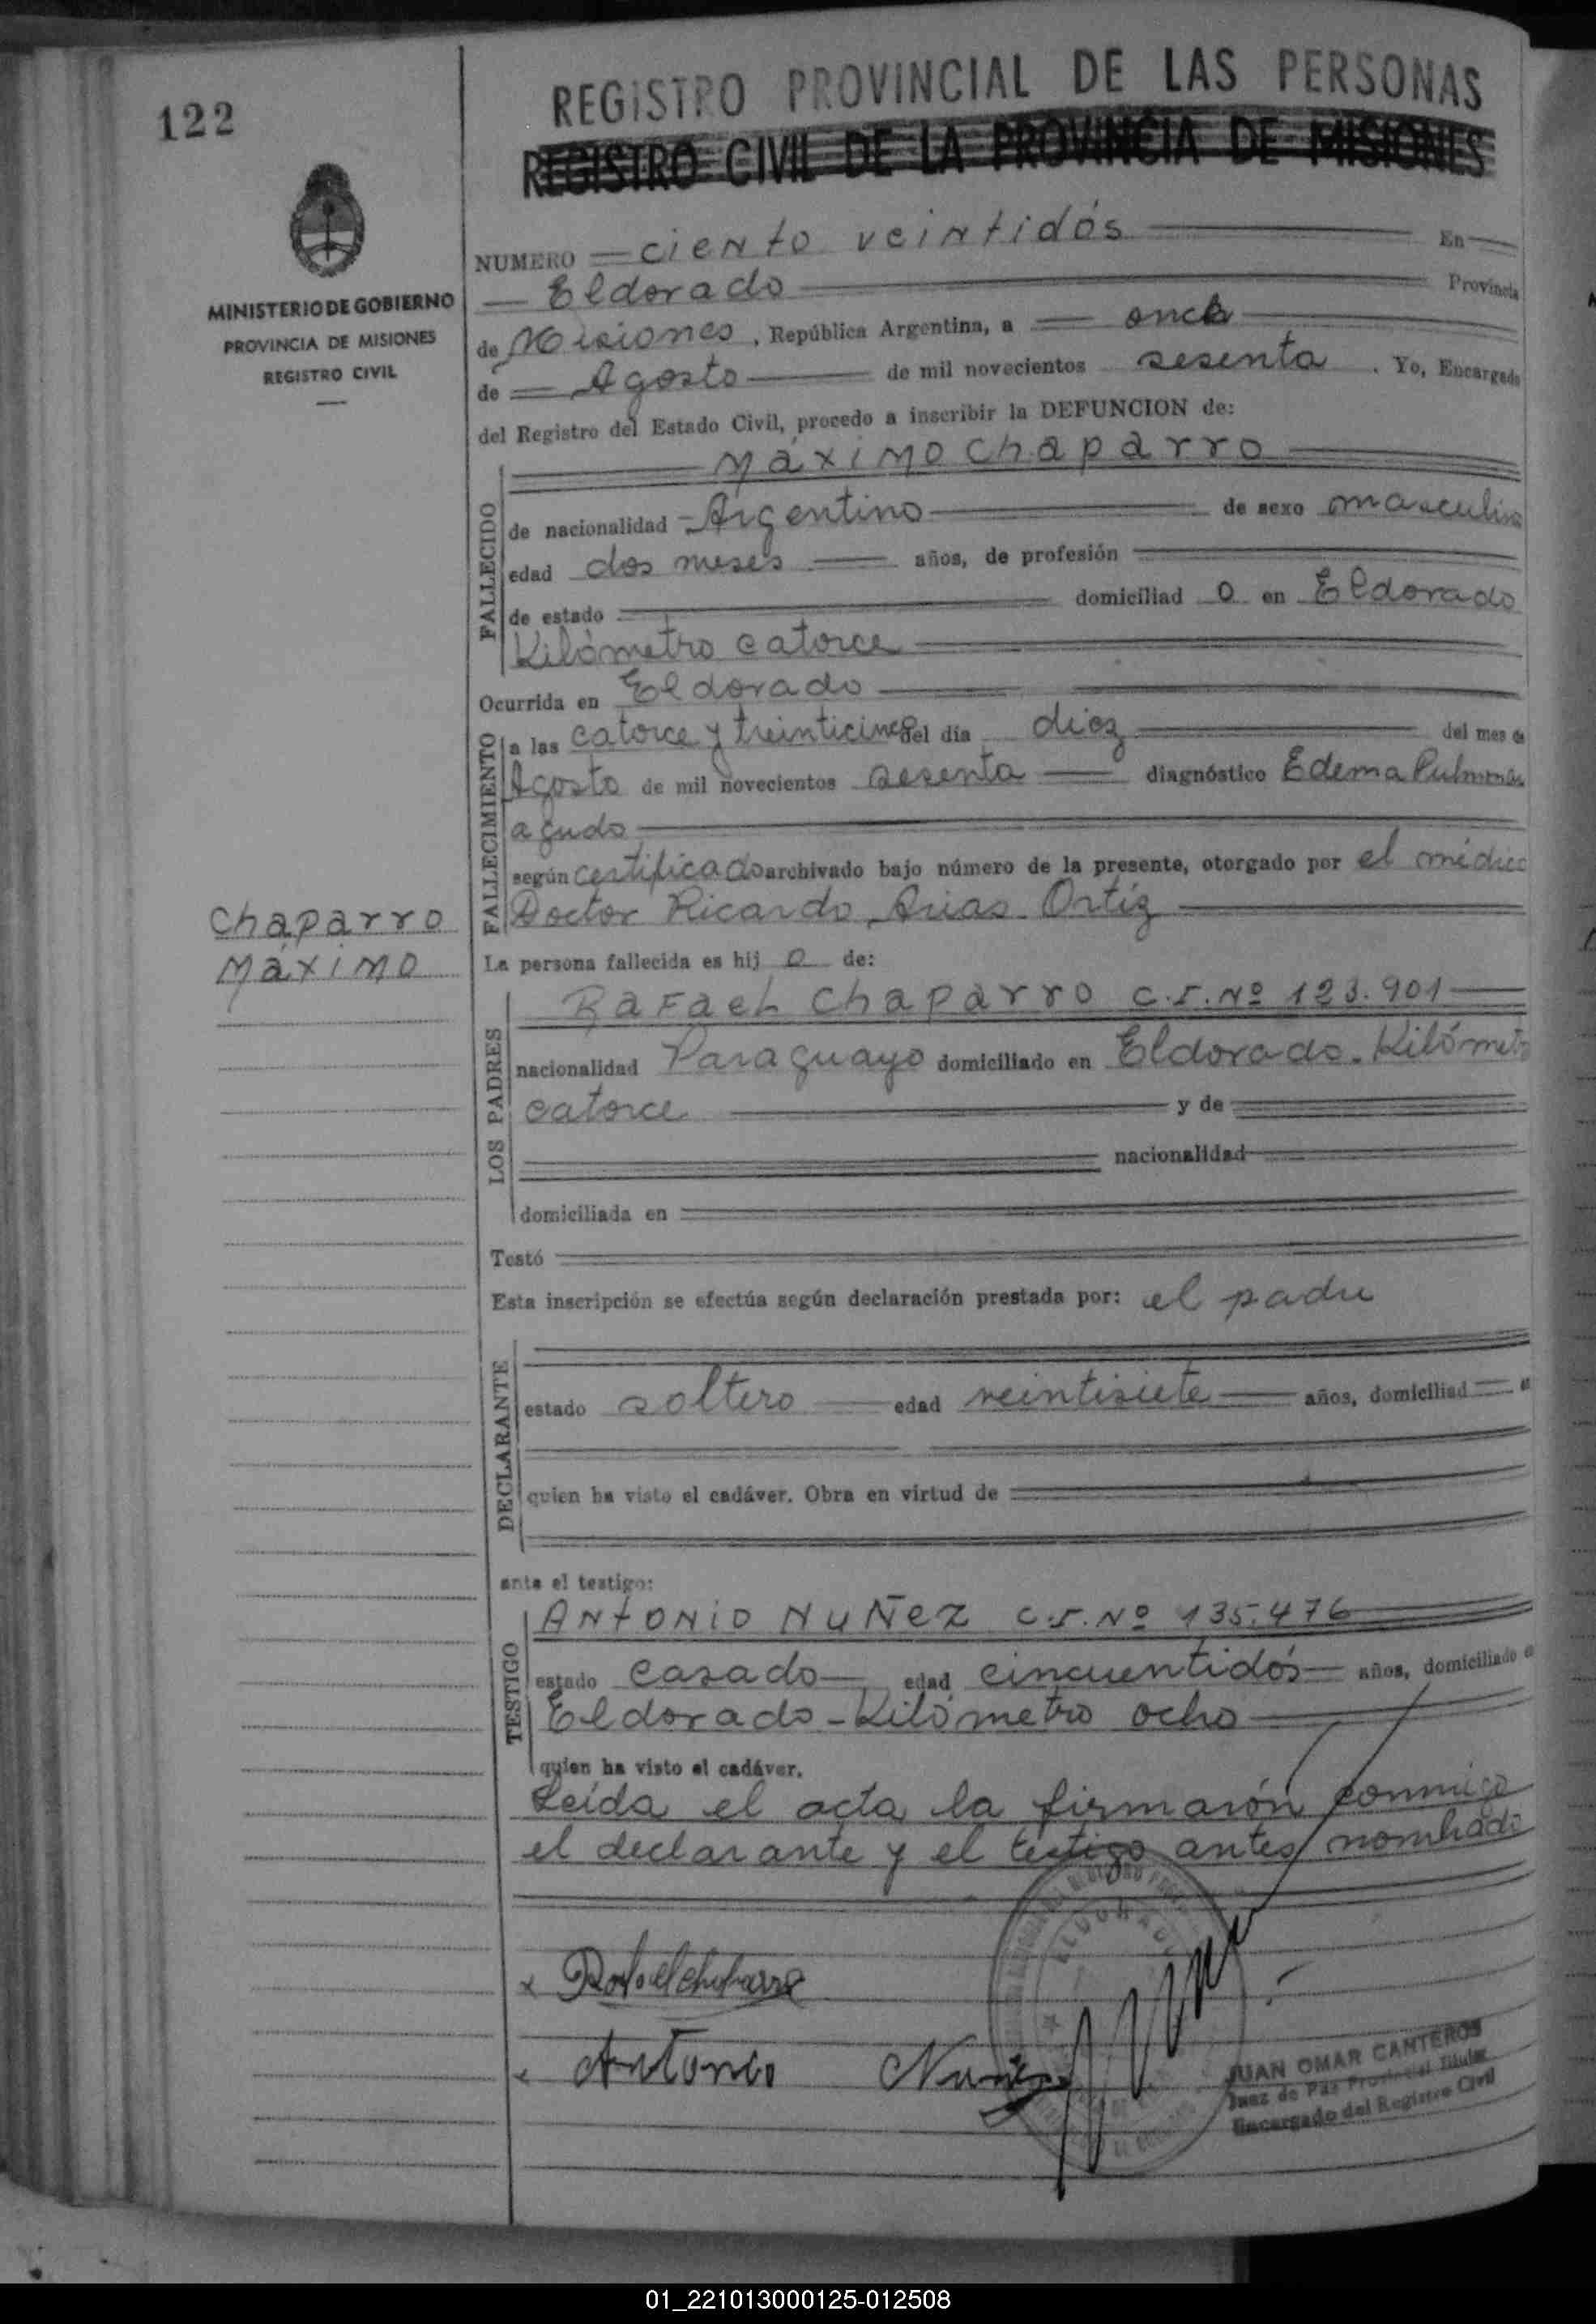 122
REGISTRO PROVINCIAL DE LAS PERSONAS
REGISTRO CIVIL DE LA PROVINCIA DE MISIONES
MINISTERIO DE GOBIERNO
PROVINCIA DE MISIONES
REGISTRO CIVIL
NUMERO ciento veintidós En
Eldorado Provincia
de Misiones, República Argentina, a once
de Agosto de mil novecientos sesenta. Yo, Encargado
del Registro del Estado Civil, procedo a inscribir la DEFUNCION de:
FALLECIDO
Máximo Chaparro
de nacionalidad Argentino de sexo masculino
edad dos meses años, de profesión
de estado domiciliad o en Eldorado
Kilómetro catorce
Ocurrida en Eldorado
FALLECIMIENTO
a las catorce y treinticinco del día diez del mes de
Agosto de mil novecientos sesenta diagnóstico Edema Pulmonar
agudo
según certificado archivado bajo número de la presente, otorgado por el médico
Doctor Ricardo Arias Ortíz
Chaparro
Máximo
La persona fallecida es hij o de:
LOS PADRES
Rafael Chaparro C.I. Nº 123.901
nacionalidad Paraguayo domiciliado en Eldorado. Kilómetro
catorce y de
nacionalidad
domiciliada en
Testó
Esta inscripción se efectúa según declaración prestada por: el padre
DECLARANTE
estado soltero edad veintisiete años, domiciliad
quien ha visto el cadáver. Obra en virtud de
ante el testigo:
TESTIGO
Antonio Nuñez C.I. Nº 135.476
estado casado edad cincuentidós años, domiciliado
Eldorado - Kilómetro ocho
quien ha visto el cadáver.
Leída el acta la firmarón conmigo
el declarante y el testigo antes nombrado
x Rafael Chaparro
x Antonio Nuñez
ELDORADO
JUAN OMAR CANTEROS
Juez de Paz Provincial Titular
Encargado del Registro Civil
01_221013000125-012508